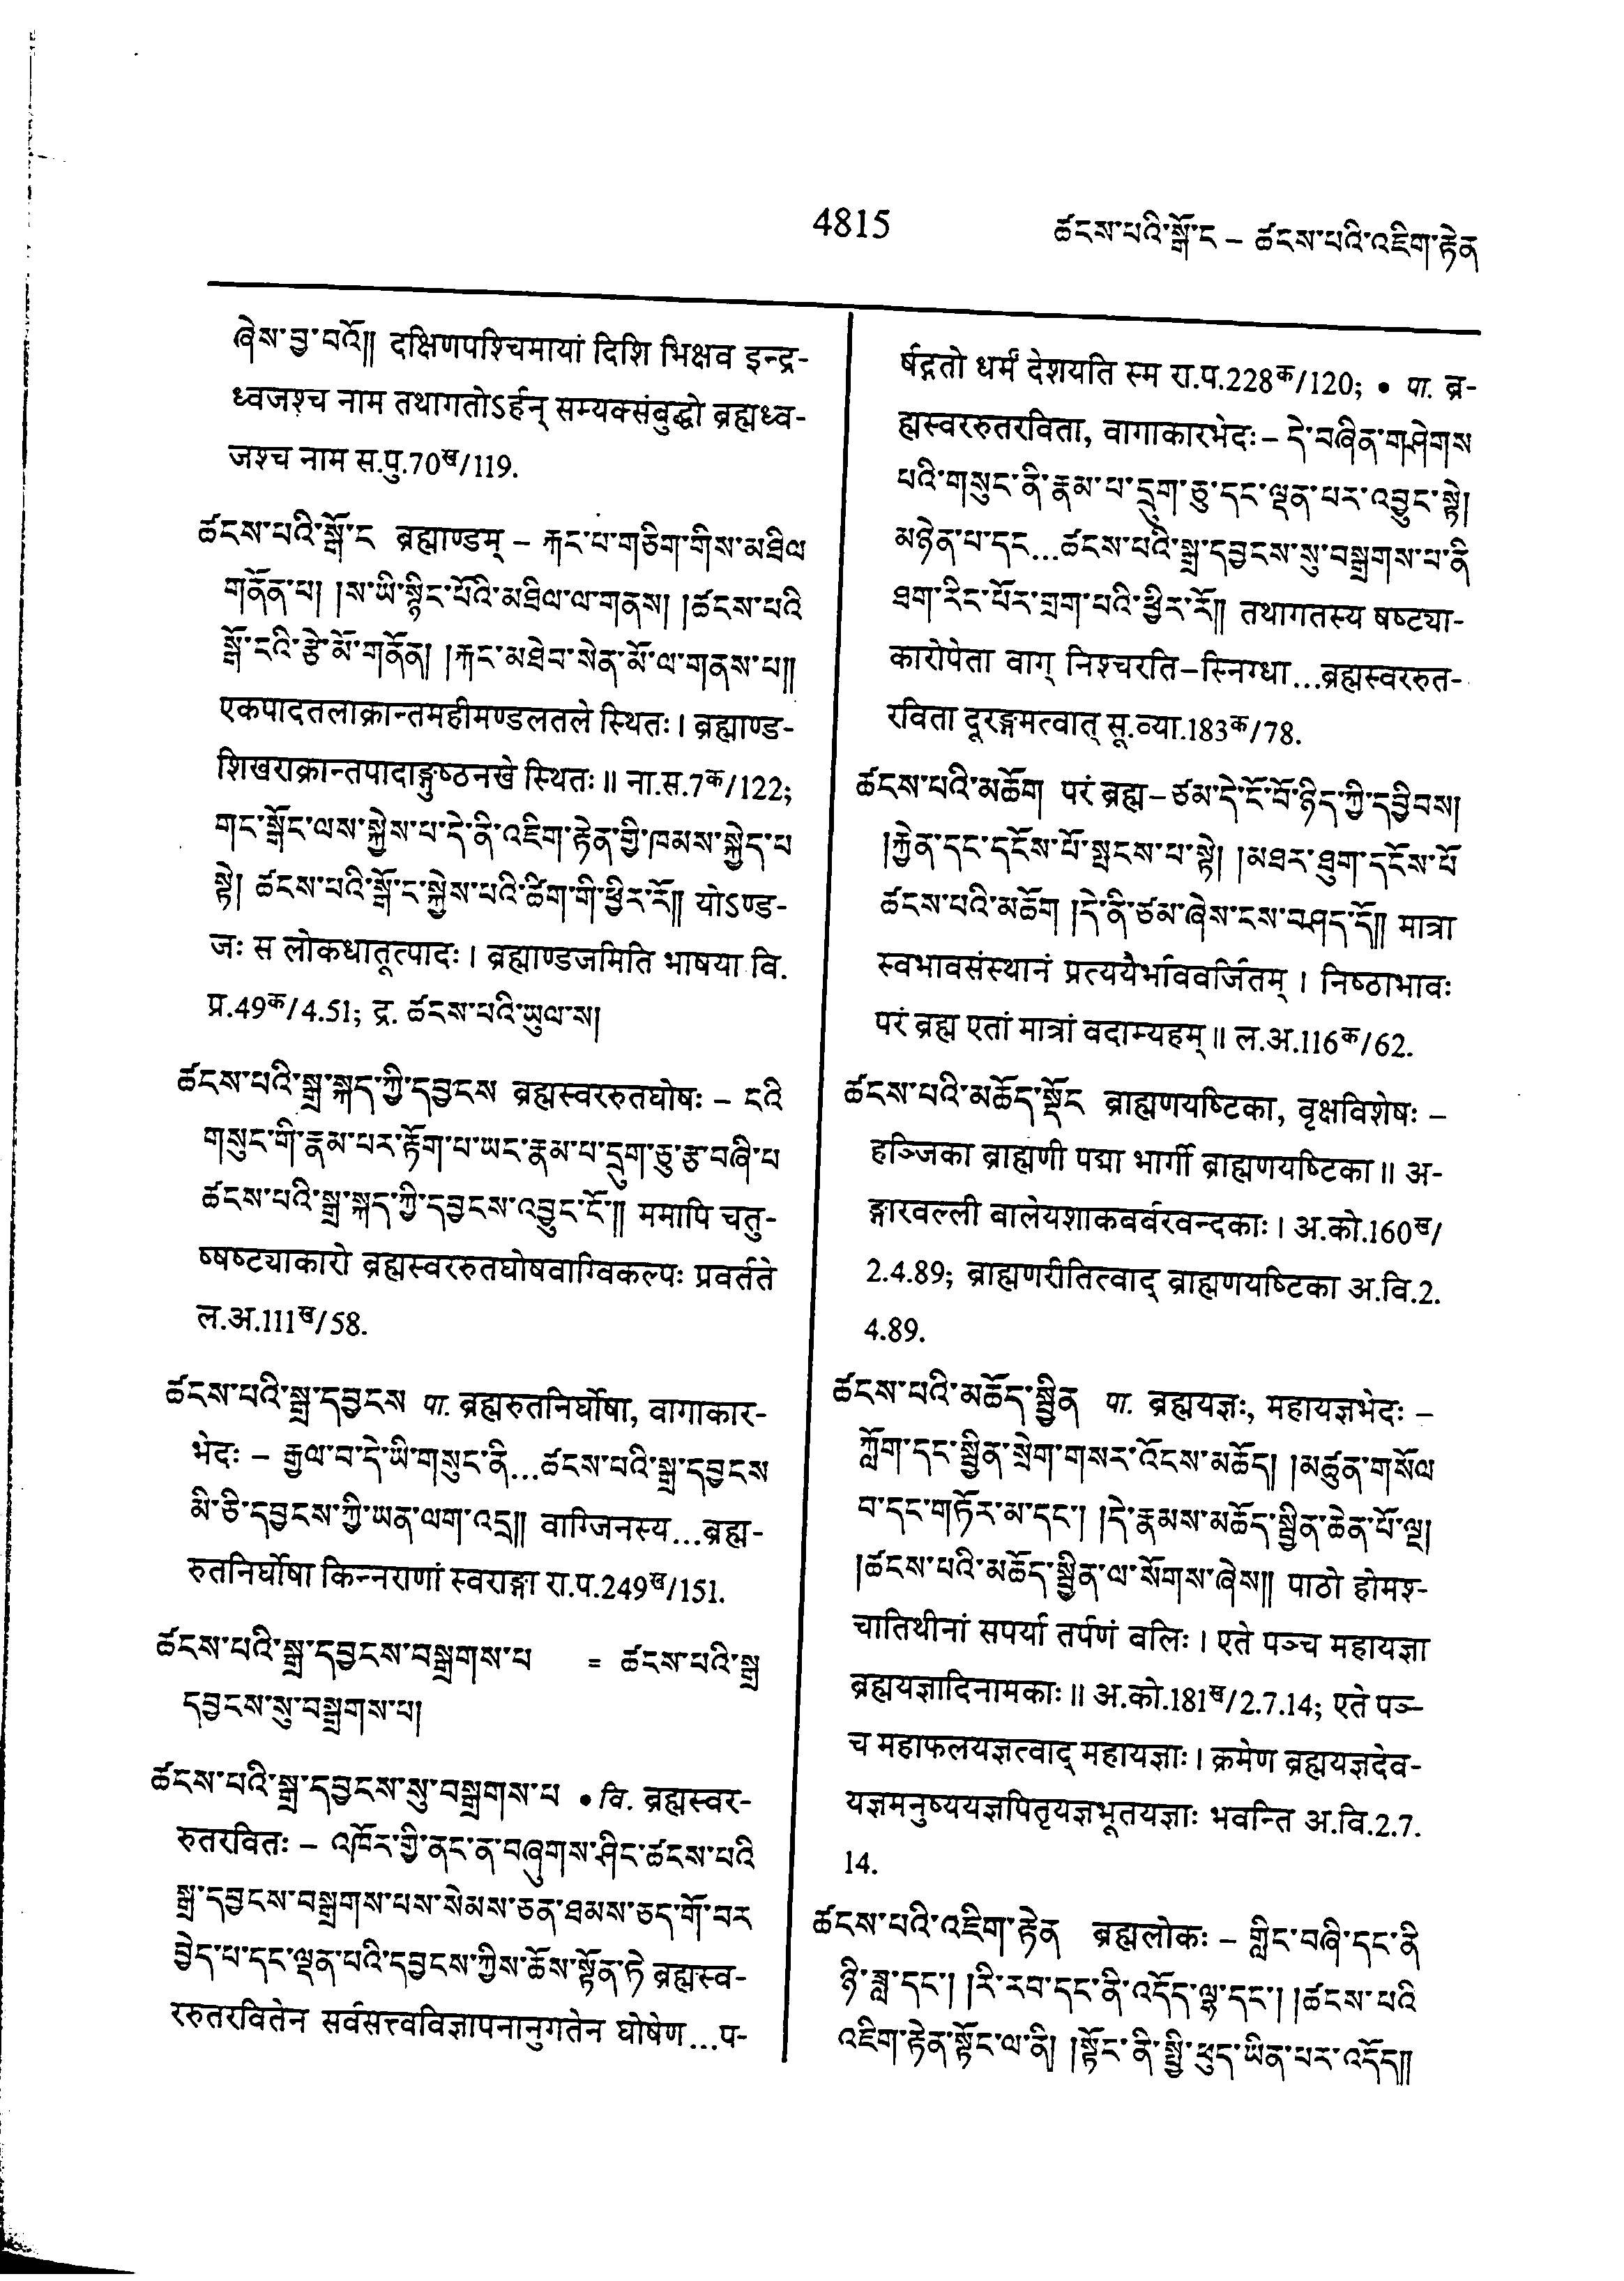 4815
ཚངས་པའི་སྒོ་ང – ཚངས་པའི་འཇིག་རྟེན
ཞེས་བྱ་བའོ༎ दक्षिणपश्चिमायां दिशि भिक्षव इन्द्र-
ध्वजश्च नाम तथागतोऽर्हन् सम्यक्संबुद्धो ब्रह्मध्व-
जश्च नाम स.पु.70ख/119.
ཚངས་པའི་སྒོ་ང ब्रह्माण्डम् – རྐང་པ་གཅིག་གིས་མཐིལ
གནོན་པ། །ས་ཡི་སྙིང་པོའི་མཐིལ་ལ་གནས། །ཚངས་པའི
སྒོ་ངའི་རྩེ་མོ་གནོན། །རྐང་མཐེབ་སེན་མོ་ལ་གནས་པ༎
एकपादतलाक्रान्तमहीमण्डलतले स्थितः। ब्रह्माण्ड-
शिखराक्रान्तपादाङ्गुष्ठनखे स्थितः॥ ना.स.7क/122;
གང་སྒོང་ལས་སྐྱེས་པ་དེ་ནི་འཇིག་རྟེན་གྱི་ཁམས་སྐྱེད་པ
སྟེ། ཚངས་པའི་སྒོ་ང་སྐྱེས་པའི་ཚིག་གི་ཕྱིར་རོ༎ योऽण्ड-
जः स लोकधातूत्पादः। ब्रह्माण्डजमिति भाषया वि.
प्र.49क/4.51; द्र. ཚངས་པའི་ཡུལ་ས།
ཚངས་པའི་སྒྲ་སྐད་ཀྱི་དབྱངས ब्रह्मस्वररुतघोषः – ངའི
གསུང་གི་རྣམ་པར་རྟོག་པ་ཡང་རྣམ་པ་དྲུག་ཅུ་རྩ་བཞི་པ
ཚངས་པའི་སྒྲ་སྐད་ཀྱི་དབྱངས་འབྱུང་ངོ་༎ ममापि चतु-
ष्षष्ट्याकारो ब्रह्मस्वररुतघोषवाग्विकल्पः प्रवर्तते
ल.अ.111ख/58.
ཚངས་པའི་སྒྲ་དབྱངས पा. ब्रह्मरुतनिर्घोषा, वागाकार-
भेदः – རྒྱལ་བ་དེ་ཡི་གསུང་ནི...ཚངས་པའི་སྒྲ་དབྱངས
མི་ཅི་དབྱངས་ཀྱི་ཡན་ལག་འདྲ༎ वाग्जिनस्य...ब्रह्म-
रुतनिर्घोषा किन्नराणां स्वराङ्गा रा.प.249ख/151.
ཚངས་པའི་སྒྲ་དབྱངས་བསྒྲགས་པ = ཚངས་པའི་སྒྲ
དབྱངས་སུ་བསྒྲགས་པ།
ཚངས་པའི་སྒྲ་དབྱངས་སུ་བསྒྲགས་པ • वि. ब्रह्मस्वर-
रुतरवितः – འཁོར་གྱི་ནང་ན་བཞུགས་ཤིང་ཚངས་པའི
སྒྲ་དབྱངས་བསྒྲགས་པས་སེམས་ཅན་ཐམས་ཅད་གོ་བར
བྱེད་པ་དང་ལྡན་པའི་དབྱངས་ཀྱིས་ཆོས་སྟོན་ཏེ ब्रह्मस्व-
ररुतरवितेन सर्वसत्त्वविज्ञापनानुगतेन घोषेण...प-
र्षद्गतो धर्मं देशयति स्म रा.प.228क/120; • पा. ब्र-
ह्मस्वररुतरविता, वागाकारभेदः – དེ་བཞིན་གཤེགས
པའི་གསུང་ནི་རྣམ་པ་དྲུག་ཅུ་དང་ལྡན་པར་འབྱུང་སྟེ།
མཉེན་པ་དང...ཚངས་པའི་སྒྲ་དབྱངས་སུ་བསྒྲགས་པ་ནི
ཐག་རིང་པོར་གྲག་པའི་ཕྱིར་རོ༎ तथागतस्य षष्ट्या-
कारोपेता वाग् निश्चरति–स्निग्धा...ब्रह्मस्वररुत-
रविता दूरङ्गमत्वात् सू.व्या.183क/78.
ཚངས་པའི་མཆོག परं ब्रह्म – ཙམ་དེ་ངོ་བོ་ཉིད་ཀྱི་དབྱིབས།
།རྐྱེན་དང་དངོས་པོ་སྤངས་པ་སྟེ། །མཐར་ཐུག་དངོས་པོ
ཚངས་པའི་མཆོག །དེ་ནི་ཙམ་ཞེས་ངས་བཤད་དོ༎ मात्रा
स्वभावसंस्थानं प्रत्ययैर्भाववर्जितम्। निष्ठाभावः
परं ब्रह्म एतां मात्रां वदाम्यहम्॥ ल.अ.116क/62.
ཚངས་པའི་མཆོད་སྡོང ब्राह्मणयष्टिका, वृक्षविशेषः –
हञ्जिका ब्राह्मणी पद्मा भार्गी ब्राह्मणयष्टिका॥ अ-
ङ्गारवल्ली बालेयशाकबर्बरवन्दकाः। अ.को.160ख/
2.4.89; ब्राह्मणरीतित्वाद् ब्राह्मणयष्टिका अ.वि.2.
4.89.
ཚངས་པའི་མཆོད་སྦྱིན पा. ब्रह्मयज्ञः, महायज्ञभेदः –
ཀློག་དང་སྦྱིན་སྲེག་གསར་འོངས་མཆོད། །མཚུན་གསོལ
བ་དང་གཏོར་མ་དང་། །དེ་རྣམས་མཆོད་སྦྱིན་ཆེན་པོ་ལྔ།
།ཚངས་པའི་མཆོད་སྦྱིན་ལ་སོགས་ཞེས༎ पाठो होमश्-
चातिथीनां सपर्या तर्पणं बलिः। एते पञ्च महायज्ञा
ब्रह्मयज्ञादिनामकाः॥ अ.को.181ख/2.7.14; एते पञ्-
च महाफलयज्ञत्वाद् महायज्ञाः। क्रमेण ब्रह्मयज्ञदेव-
यज्ञमनुष्ययज्ञपितृयज्ञभूतयज्ञाः भवन्ति अ.वि.2.7.
14.
ཚངས་པའི་འཇིག་རྟེན ब्रह्मलोकः – གླིང་བཞི་དང་ནི
ཉི་ཟླ་དང་། །རི་རབ་དང་ནི་འདོད་ལྷ་དང་། །ཚངས་པའི
འཇིག་རྟེན་སྟོང་ལ་ནི། །སྟོང་ནི་སྤྱི་ཕུད་ཡིན་པར་འདོད༎